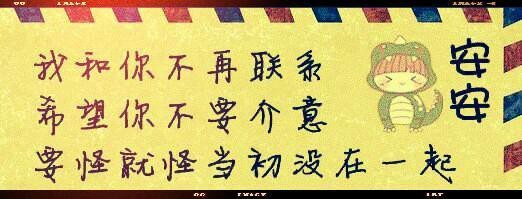 我和你不再联系
希望你不要介意
要怪就怪当初没在一起
安安